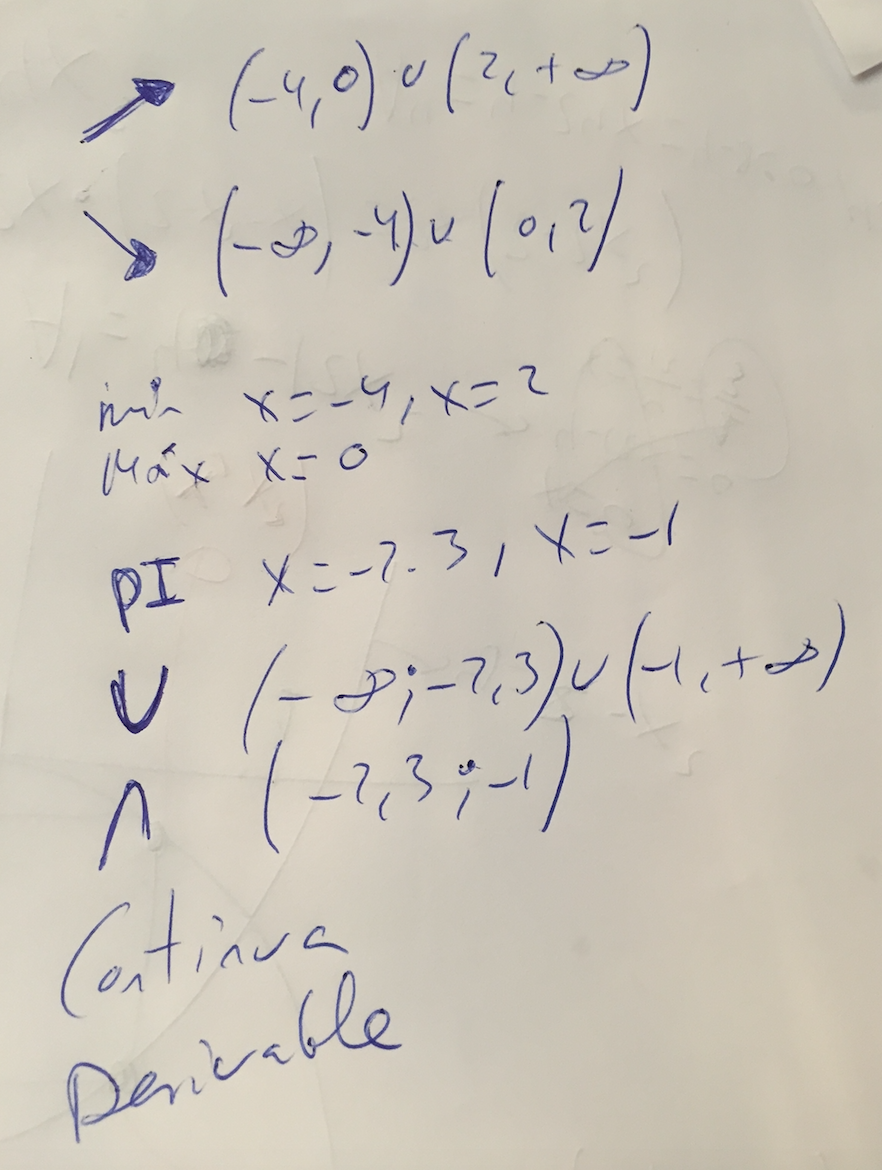 ↗ (-4,0) ∪ (2,+∞)
↘ (-∞,-4) ∪ (0,2)
mín x=-4, x=2
Máx x=0
PI x=-2.3, x=-1
∪ (-∞;-2,3) ∪ (-1,+∞)
∩ (-2,3;-1)
Continua
Derivable